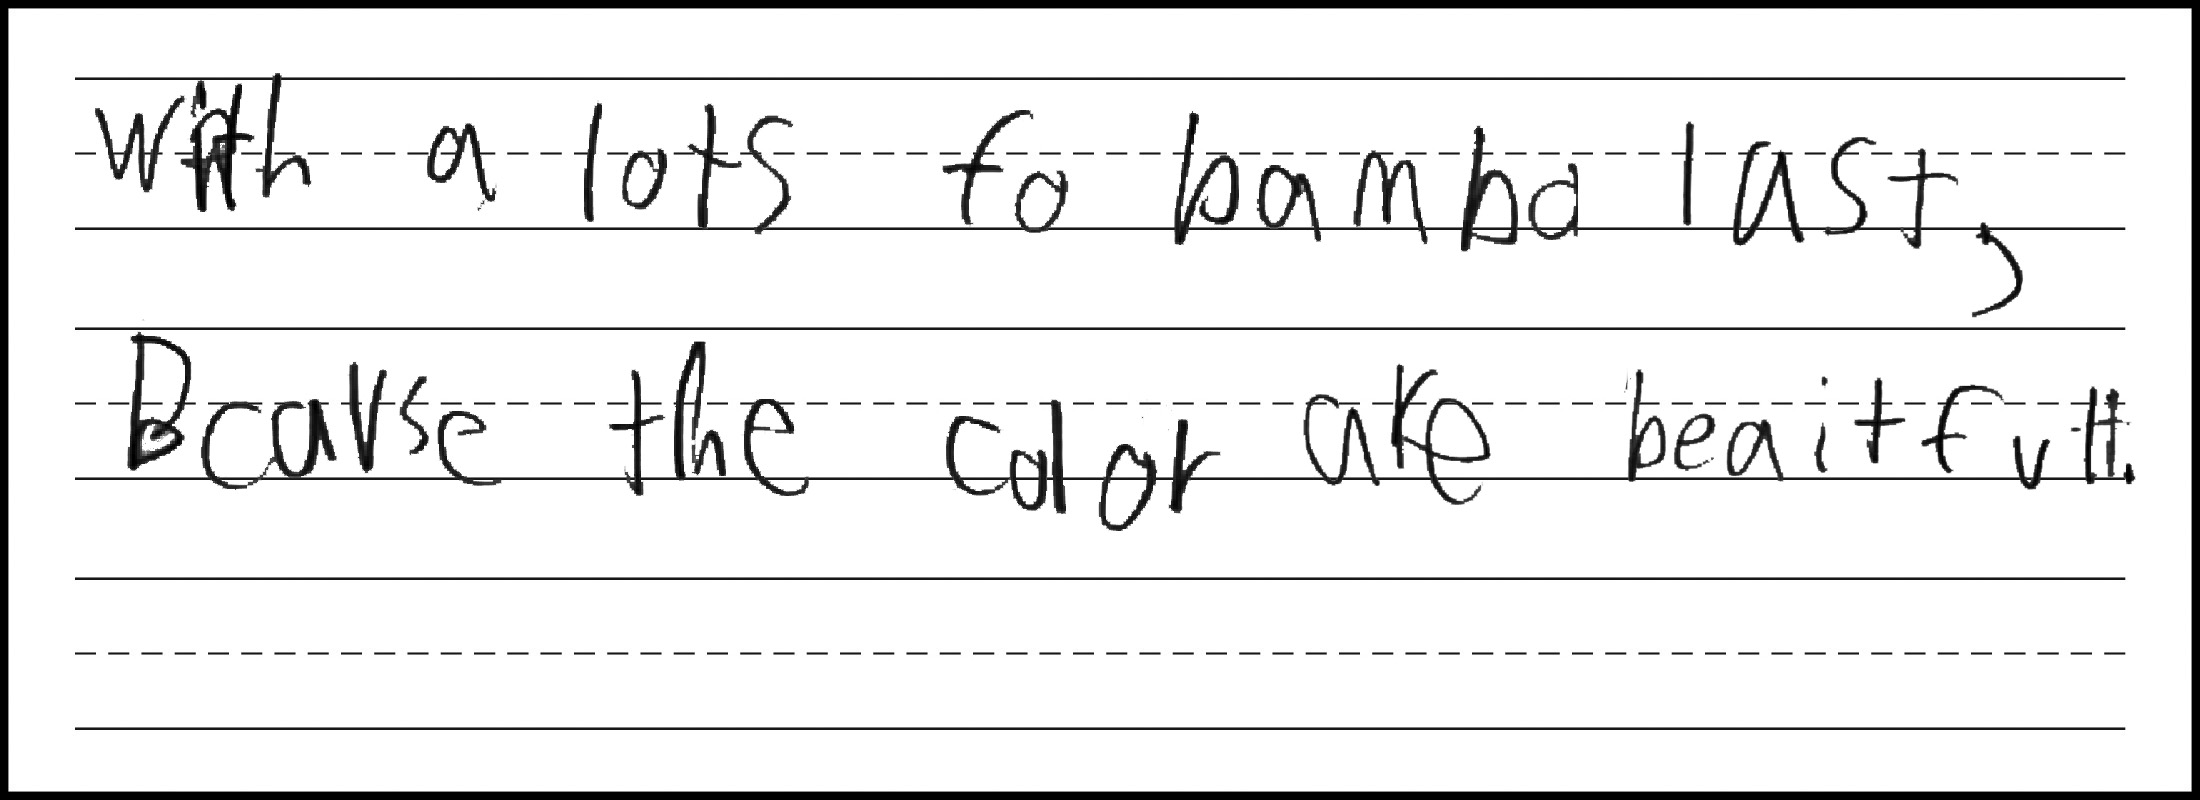 With a lots fo bamba last,
Bcause the color are beaitfull.